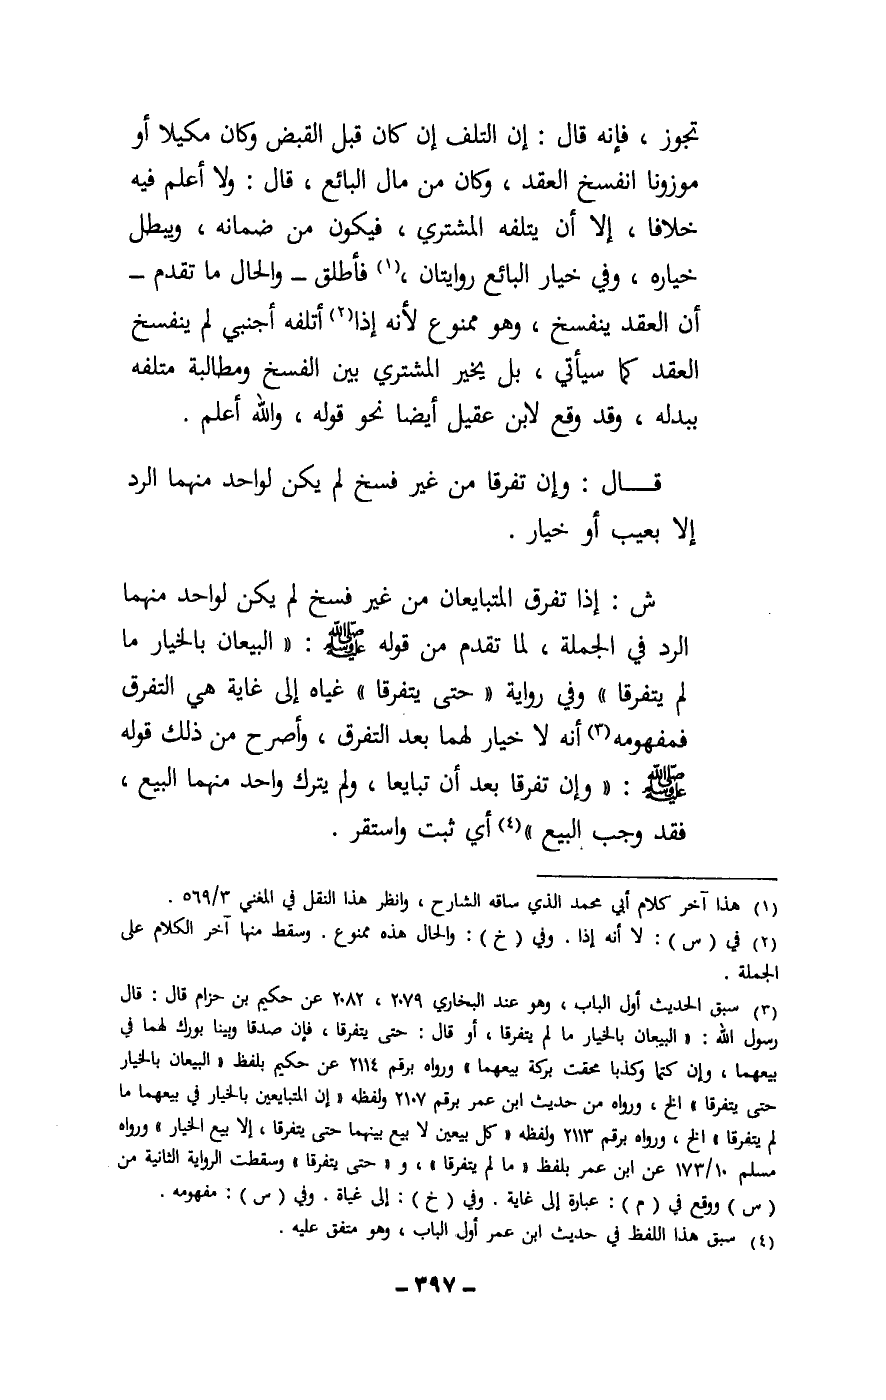 تجوز ، فإنه قال : إن التلف إن كان قبل القبض وكان مكيلا أو
موزونا انفسخ العقد ، وكان من مال البائع ، قال : ولا أعلم فيه
خلافا ، إلا أن يتلفه المشتري ، فيكون من ضمانه ، ويبطل
خياره ، وفي خيار البائع روايتان ،(١) فأطلق ــ والحال ما تقدم ــ
أن العقد ينفسخ ، وهو ممنوع لأنه إذا(٢) أتلفه أجنبي لم ينفسخ
العقد كما سيأتي ، بل يخير المشتري بين الفسخ ومطالبة متلفه
ببدله ، وقد وقع لابن عقيل أيضا نحو قوله ، والله أعلم .
قـــال : وإن تفرقا من غير فسخ لم يكن لواحد منهما الرد
إلا بعيب أو خيار .
ش : إذا تفرق المتبايعان من غير فسخ لم يكن لواحد منهما
الرد في الجملة ، لما تقدم من قوله ﷺ : « البيعان بالخيار ما
لم يتفرقا » وفي رواية « حتى يتفرقا » غياه إلى غاية هي التفرق
فمفهومه(٣) أنه لا خيار لهما بعد التفرق ، وأصرح من ذلك قوله
ﷺ : « وإن تفرقا بعد أن تبايعا ، ولم يترك واحد منهما البيع ،
فقد وجب البيع »(٤) أي ثبت واستقر .
(١) هذا آخر كلام أبي محمد الذي ساقه الشارح ، وانظر هذا النقل في المغني ٥٦٩/٣ .
(٢) في ( س ) : لا أنه إذا . وفي ( خ ) : والحال هذه ممنوع . وسقط منها آخر الكلام على
الجملة .
(٣) سبق الحديث أول الباب ، وهو عند البخاري ٢٠٧٩ ، ٢٠٨٢ عن حكيم بن حزام قال : قال
رسول الله : « البيعان بالخيار ما لم يتفرقا ، أو قال : حتى يتفرقا ، فإن صدقا وبينا بورك لهما في
بيعهما ، وإن كتما وكذبا محقت بركة بيعهما » ورواه برقم ٢١١٤ عن حكيم بلفظ « البيعان بالخيار
حتى يتفرقا » الخ ، ورواه من حديث ابن عمر برقم ٢١٠٧ ولفظه « إن المتبايعين بالخيار في بيعهما ما
لم يتفرقا » الخ ، ورواه برقم ٢١١٣ ولفظه « كل بيعين لا بيع بينهما حتى يتفرقا ، إلا بيع الخيار » ورواه
مسلم ١٧٣/١٠ عن ابن عمر بلفظ « ما لم يتفرقا » ، و « حتى يتفرقا » وسقطت الرواية الثانية من
( س ) ووقع في ( م ) : عبارة إلى غاية . وفي ( خ ) : إلى غياة . وفي ( س ) : مفهومه .
(٤) سبق هذا اللفظ في حديث ابن عمر أول الباب ، وهو متفق عليه .
ــ ٣٩٧ ــ